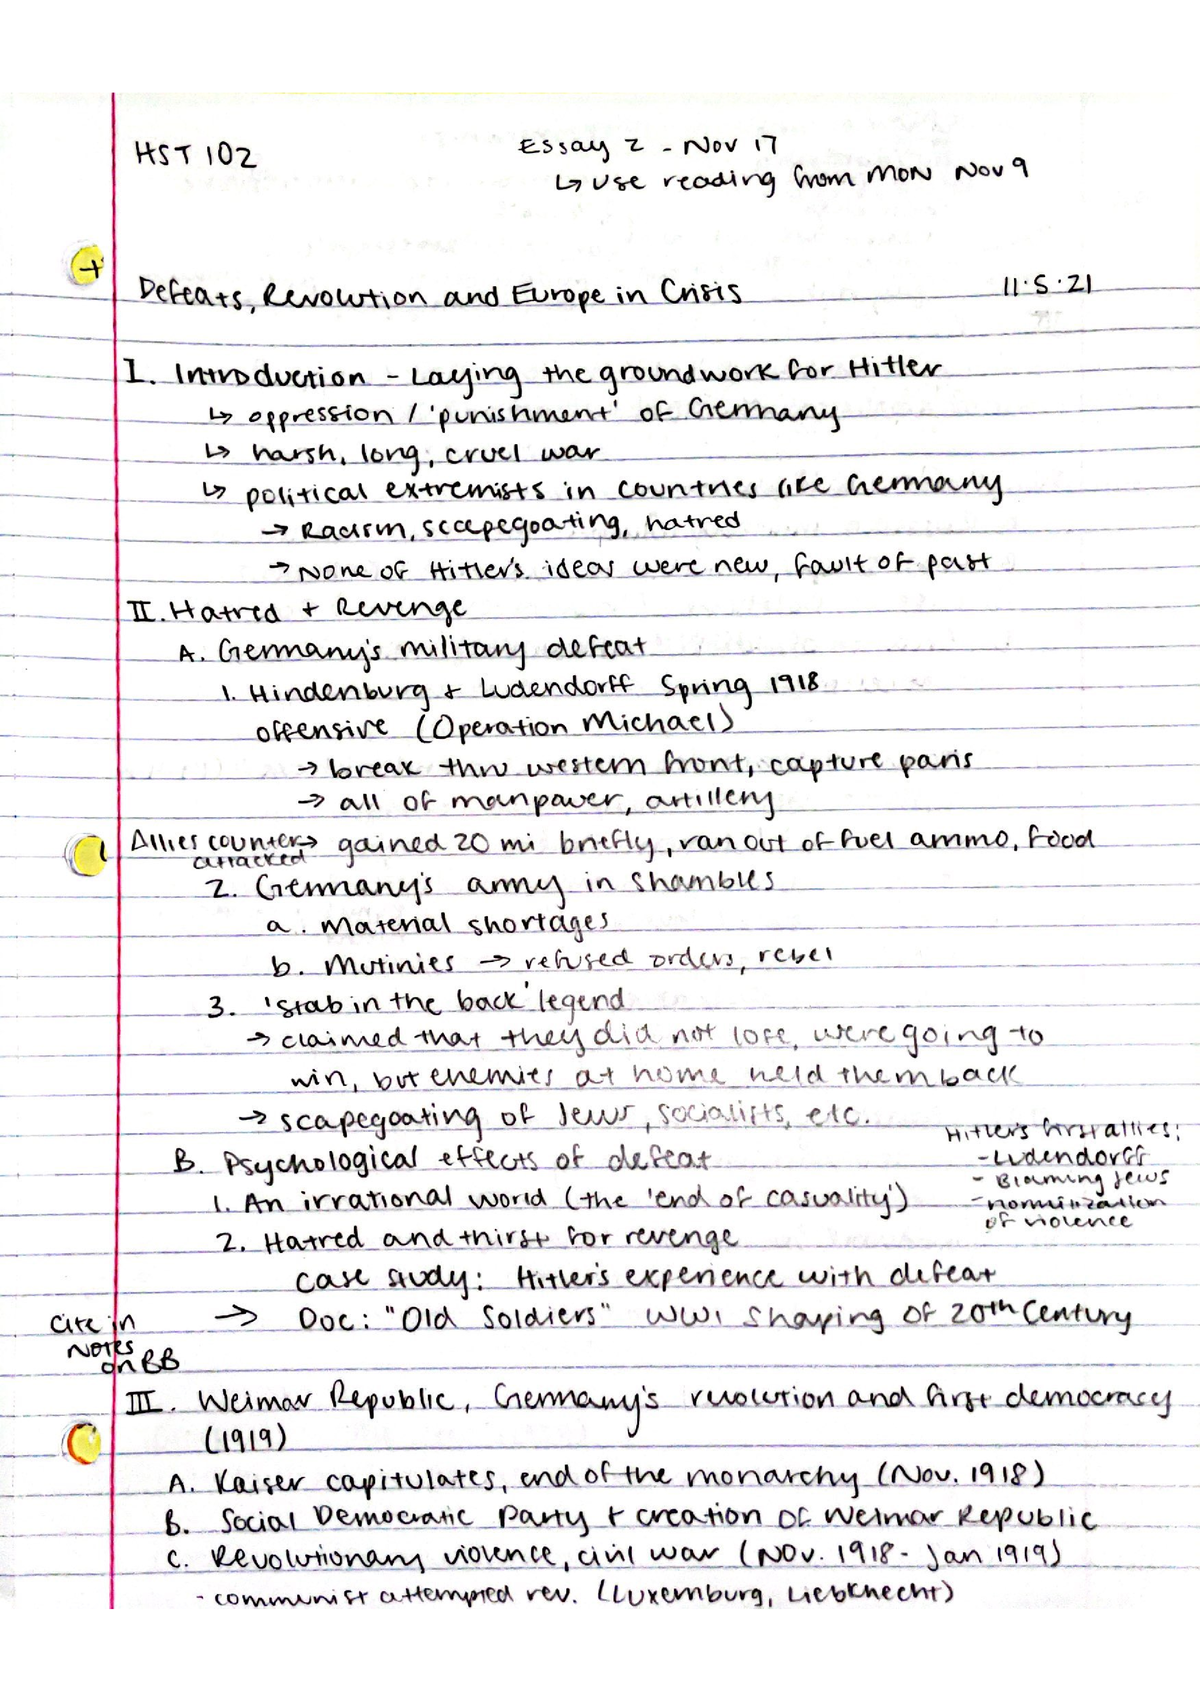 HST 102
Essay 2 - Nov 17
↳ use reading from MON Nov 9
+
Defeats, Revolution and Europe in Crisis
11.5.21
I. Introduction - Laying the groundwork for Hitler
↳ oppression / 'punishment' of Germany
↳ harsh, long, cruel war
↳ political extremists in countries like Germany
→ Racism, scapegoating, hatred
→ None of Hitler's ideas were new, fault of past
II. Hatred + Revenge
A. Germany's military defeat
1. Hindenburg + Ludendorff Spring 1918
offensive (Operation Michael)
→ break thru western front, capture paris
→ all of manpower, artillery
Allies counter attacked → gained 20 mi briefly, ran out of fuel ammo, food
2. Germany's army in shambles
a. Material shortages
b. Mutinies → refused orders, rebel
3. 'stab in the back' legend
→ claimed that they did not lose, were going to
win, but enemies at home held them back
→ scapegoating of Jews, socialists, etc.
Hitler's first allies:
- Ludendorff
- Blaming Jews
- normilization
of violence
B. Psychological effects of defeat
1. An irrational world (the 'end of casuality')
2. Hatred and thirst for revenge
case study: Hitler's experience with defeat
→ Doc: "Old Soldiers" WW1 shaping of 20th Century
cite in
Notes
on BB
III. Weimar Republic, Germany's revolution and first democracy
(1919)
A. Kaiser capitulates, end of the monarchy (Nov. 1918)
B. Social Democratic Party + creation of Weimar Republic
C. Revolutionary violence, civil war (Nov. 1918 - Jan 1919)
- communist attempted rev. (Luxemburg, Liebknecht)